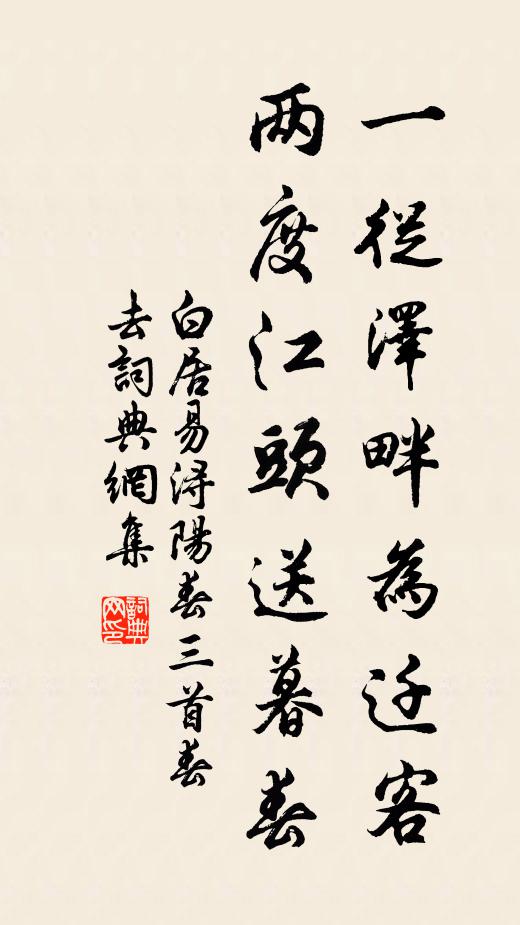 一從澤畔為迁客
两度江頭送暮春
白居易潯陽春三首春
去詞典網集
詞典网印